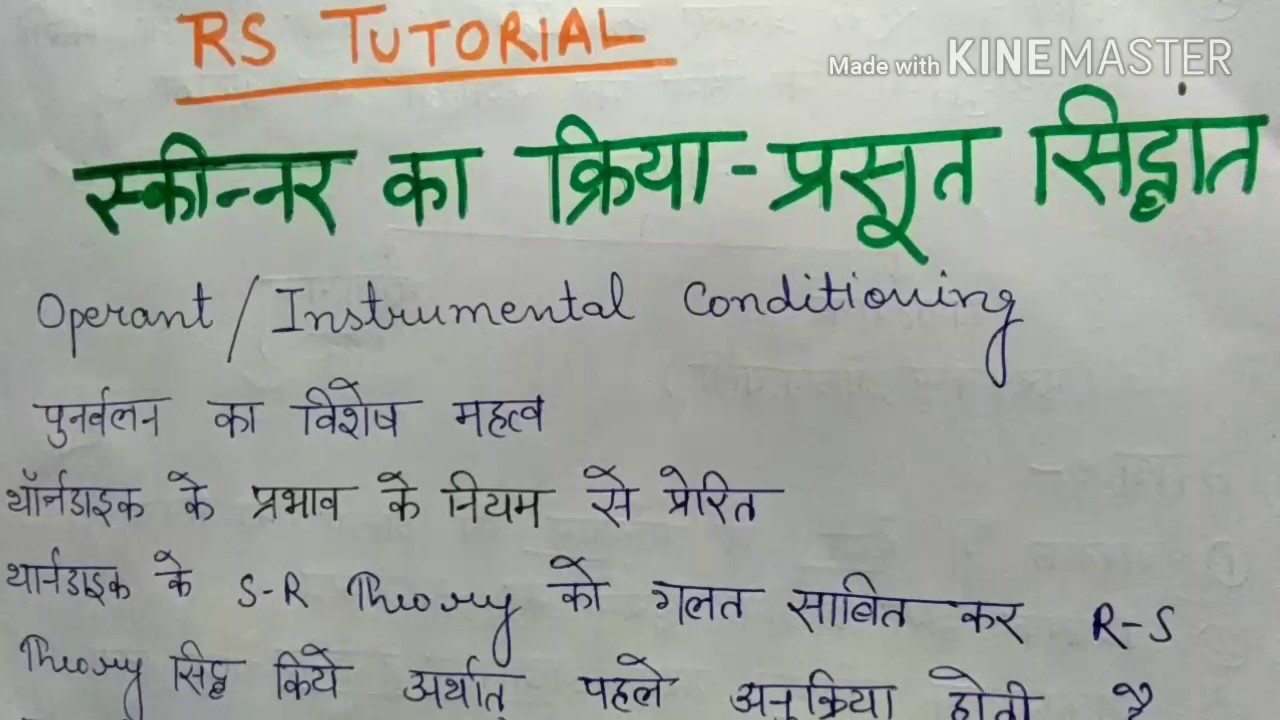 RS TUTORIAL
Made with KINEMASTER
स्कीन्नर का क्रिया-प्रसूत सिद्धांत
Operant / Instrumental Conditioning
पुनर्वलन का विशेष महत्व
थॉर्नडाइक के प्रभाव के नियम से प्रेरित
थार्नडाइक के S-R Theory को गलत साबित कर R-S
Theory सिद्ध किये अर्थात् पहले अनुक्रिया होती है